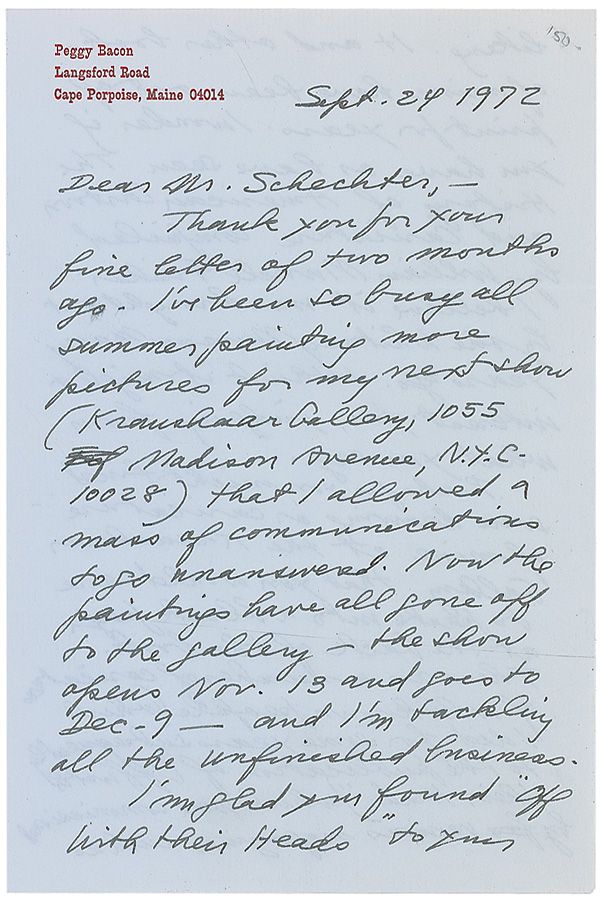 '50-
Peggy Bacon
Langsford Road
Cape Porpoise, Maine 04014
Sept. 24 1972
Dear Mr. Schechter, —
Thank you for your
fine letter of two months
ago. I've been so busy all
summer painting more
pictures for my next show
(Kraushaar Gallery, 1055
Madison Avenue, N.Y.C.
10028) that I allowed a
mass of communications
to go unanswered. Now the
paintings have all gone off
to the gallery — the show
opens Nov. 13 and goes to
Dec-9 — and I'm tackling
all the unfinished business.
I'm glad you found "Off
With their Heads" to your